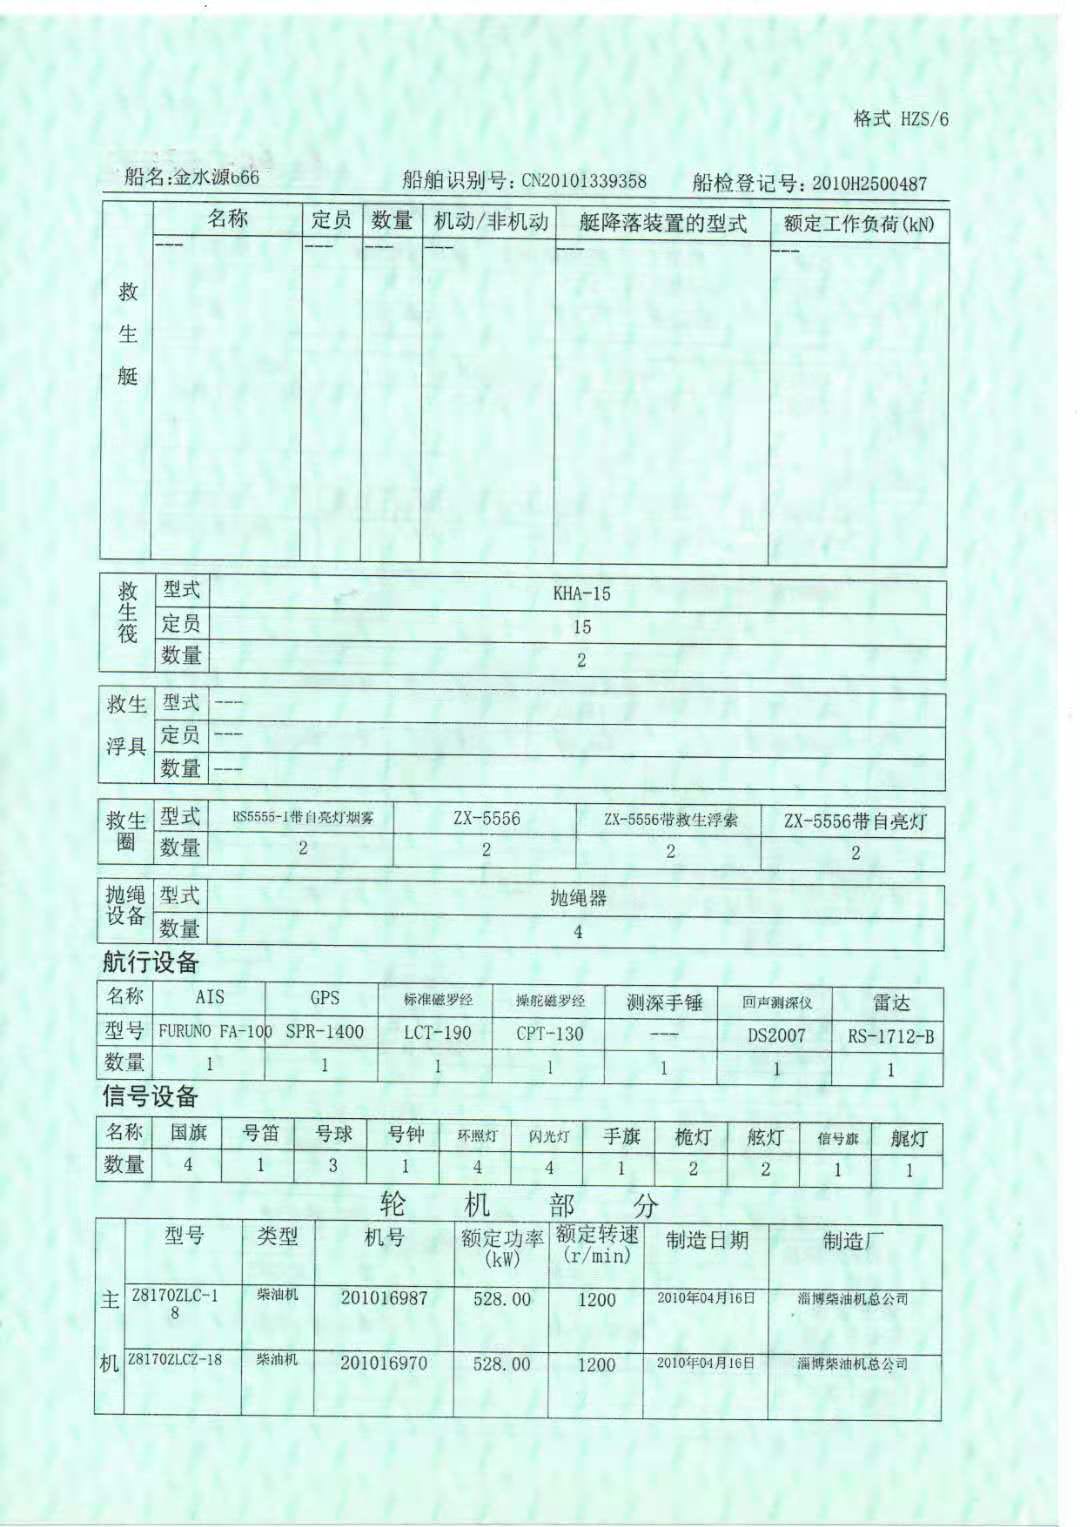 格式 HZS/6
船名:金水源666 船舶识别号: CN20101339358 船检登记号: 2010H2500487
救生艇 名称 定员 数量 机动/非机动 艇降落装置的型式 额定工作负荷(kN)
--- --- --- --- --- ---
救生筏 型式 KHA-15
定员 15
数量 2
救生浮具 型式 ---
定员 ---
数量 ---
救生圈 型式 RS5555-1带自亮灯烟雾 ZX-5556 ZX-5556带救生浮索 ZX-5556带自亮灯
数量 2 2 2 2
抛绳设备 型式 抛绳器
数量 4
航行设备
名称 AIS GPS 标准磁罗经 操舵磁罗经 测深手锤 回声测深仪 雷达
型号 FURUNO FA-100 SPR-1400 LCT-190 CPT-130 --- DS2007 RS-1712-B
数量 1 1 1 1 1 1 1
信号设备
名称 国旗 号笛 号球 号钟 环照灯 闪光灯 手旗 桅灯 舷灯 信号旗 艉灯
数量 4 1 3 1 4 4 1 2 2 1 1
轮机部分
主机 型号 类型 机号 额定功率(kW) 额定转速(r/min) 制造日期 制造厂
Z8170ZLC-18 柴油机 201016987 528.00 1200 2010年04月16日 淄博柴油机总公司
Z8170ZLCZ-18 柴油机 201016970 528.00 1200 2010年04月16日 淄博柴油机总公司